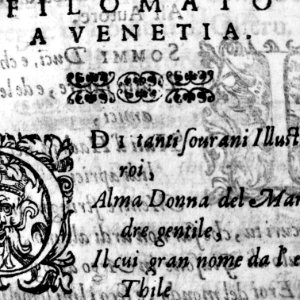 FILOMATO
A VENETIA.
DI tanti sourani Illust
roi,
Alma Donna del Mar
dre gentile,
Il cui gran nome da l'e
Thile